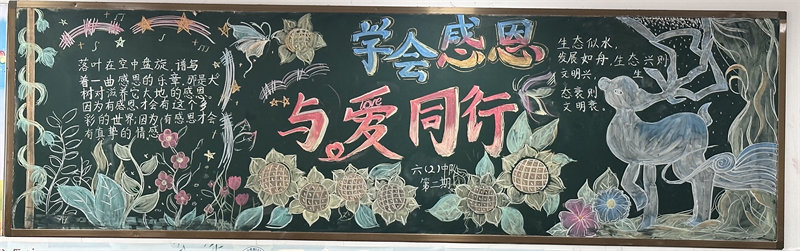 落叶在空中盘旋,谱写
着一曲感恩的乐章,那是大
树对滋养它大地的感恩
因为有感恩才会有这个多
彩的世界,因为有感恩才会
有真挚的情感
学会感恩
与爱同行
Love
六(2)中队
第二期
生态似水,
发展如舟,生态兴则
文明兴, 生
态衰则
文明衰。